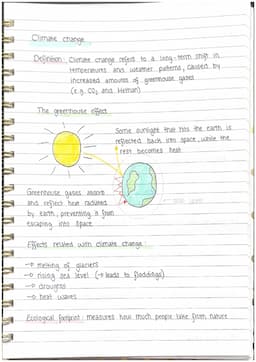 Climate change
Definition: Climate change refers to a long-term shift in
temperatures and weather patterns, caused by
increased amounts of greenhouse gases
(e.g. CO2 and
The greenhouse effect
Some sunlight that hits the earth is
reflected back into space, while the
rest becomes heat
Greenhouse gases absorb
and reflect heat radiated
by earth, preventing it from
escaping into space
Effects related with climate change:
→ melting of glaciers
→ rising sea level (→ leads to floodings)
→ droughts
→ heat waves
Ecological footprint: measures how much people take from nature